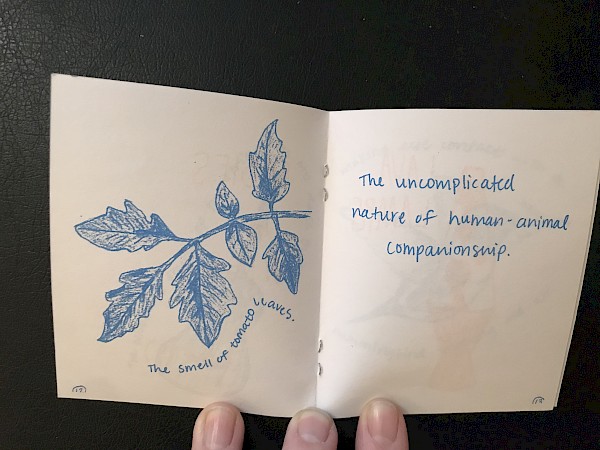 The smell of tomato leaves.
The uncomplicated
nature of human-animal
companionship.